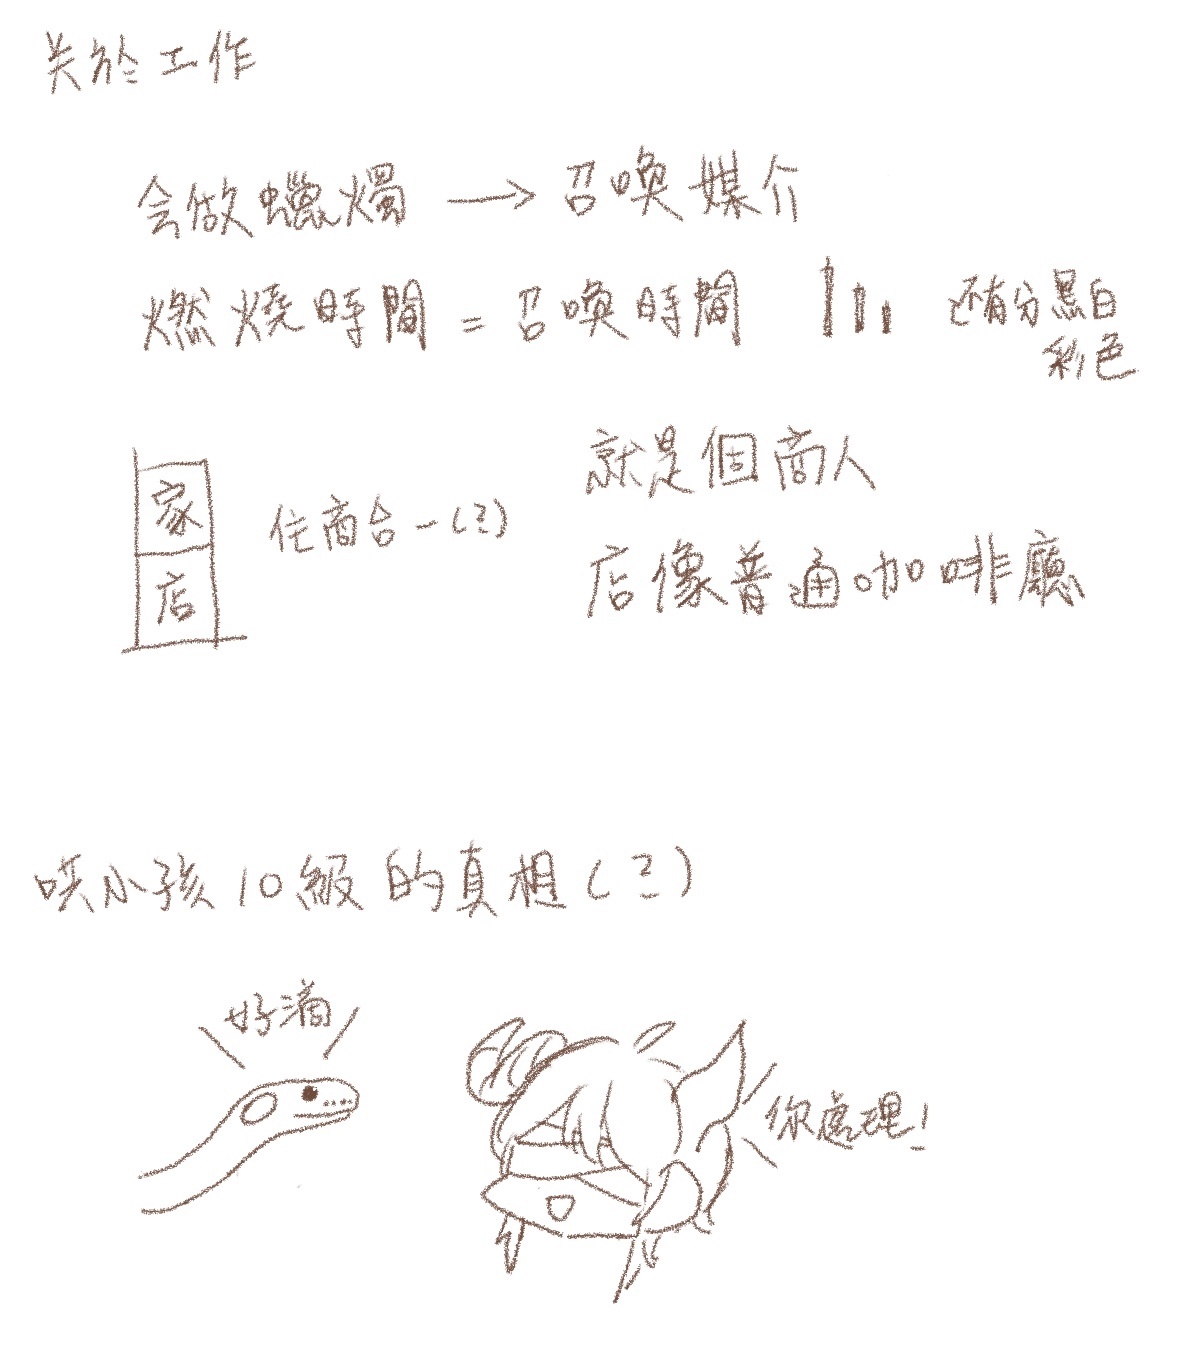 关於工作
会做蠟燭 → 召喚媒介
燃燒時間 = 召喚時間
还有分黑白
彩色
家
店
住商合一(?)
就是個商人
店像普通咖啡廳
哄小孩10級的真相(?)
好滴
你處理!